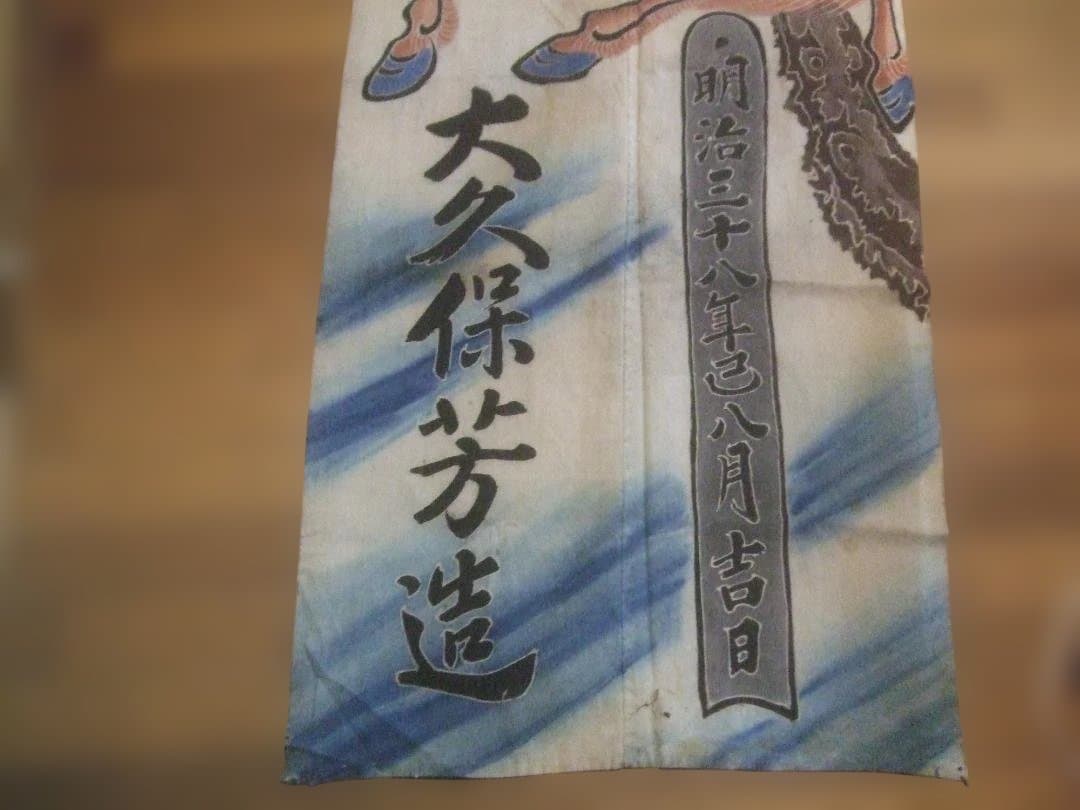 明治三十八年己八月吉日
大久保芳造